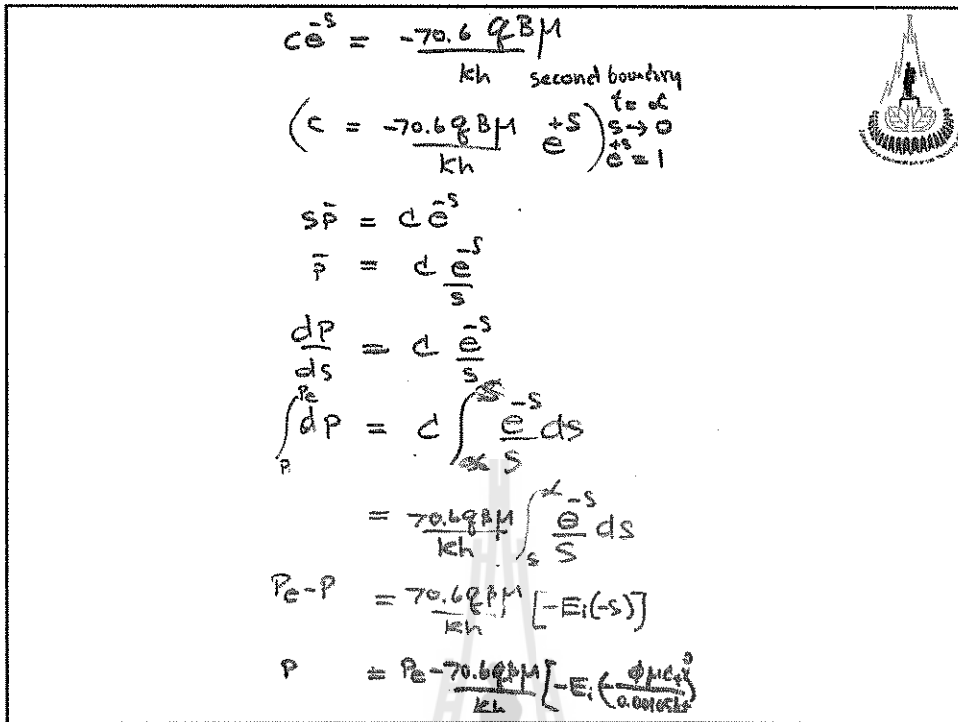 ce^-s = -70.6 qBμ / kh
second boundary
t = α
(c = -70.6 qBμ / kh e^+s) s → 0
e^+s = 1
sp̄ = c e^-s
p̄ = c e^-s / s
dP/ds = c e^-s / s
∫_P^Pe dP = c ∫ e^-s / s ds
= 70.6qBμ / kh ∫_s^α e^-s / s ds
Pe-P = 70.6qBμ / kh [-Ei(-s)]
P = Pe - 70.6qBμ / kh [-Ei(-φμc